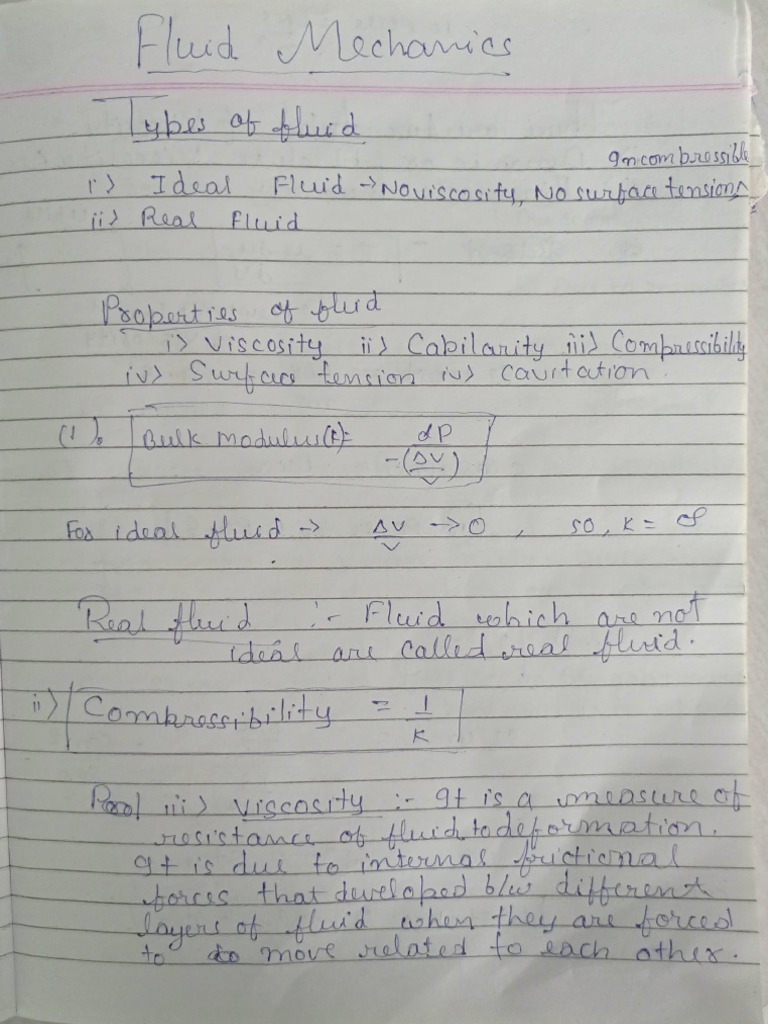 Fluid Mechanics
Types of fluid
Incombressible
i> Ideal Fluid → No viscosity, No surface tension,
ii> Real Fluid
Properties of fluid
i> Viscosity ii> Cabilarity iii> Compressibility
iv> Surface tension iv> cavitation
(1). Bulk modulus(k)= dP
-(ΔV/V)
For ideal fluid → ΔV/V → 0 , so, K = ∞
Real fluid :- Fluid which are not
ideal are called real fluid.
ii> Combressibility = 1/K
iii> Viscosity :- It is a measure of
resistance of fluid to deformation.
It is due to internal frictional
forces that developed b/w different
layers of fluid when they are forced
to move related to each other.